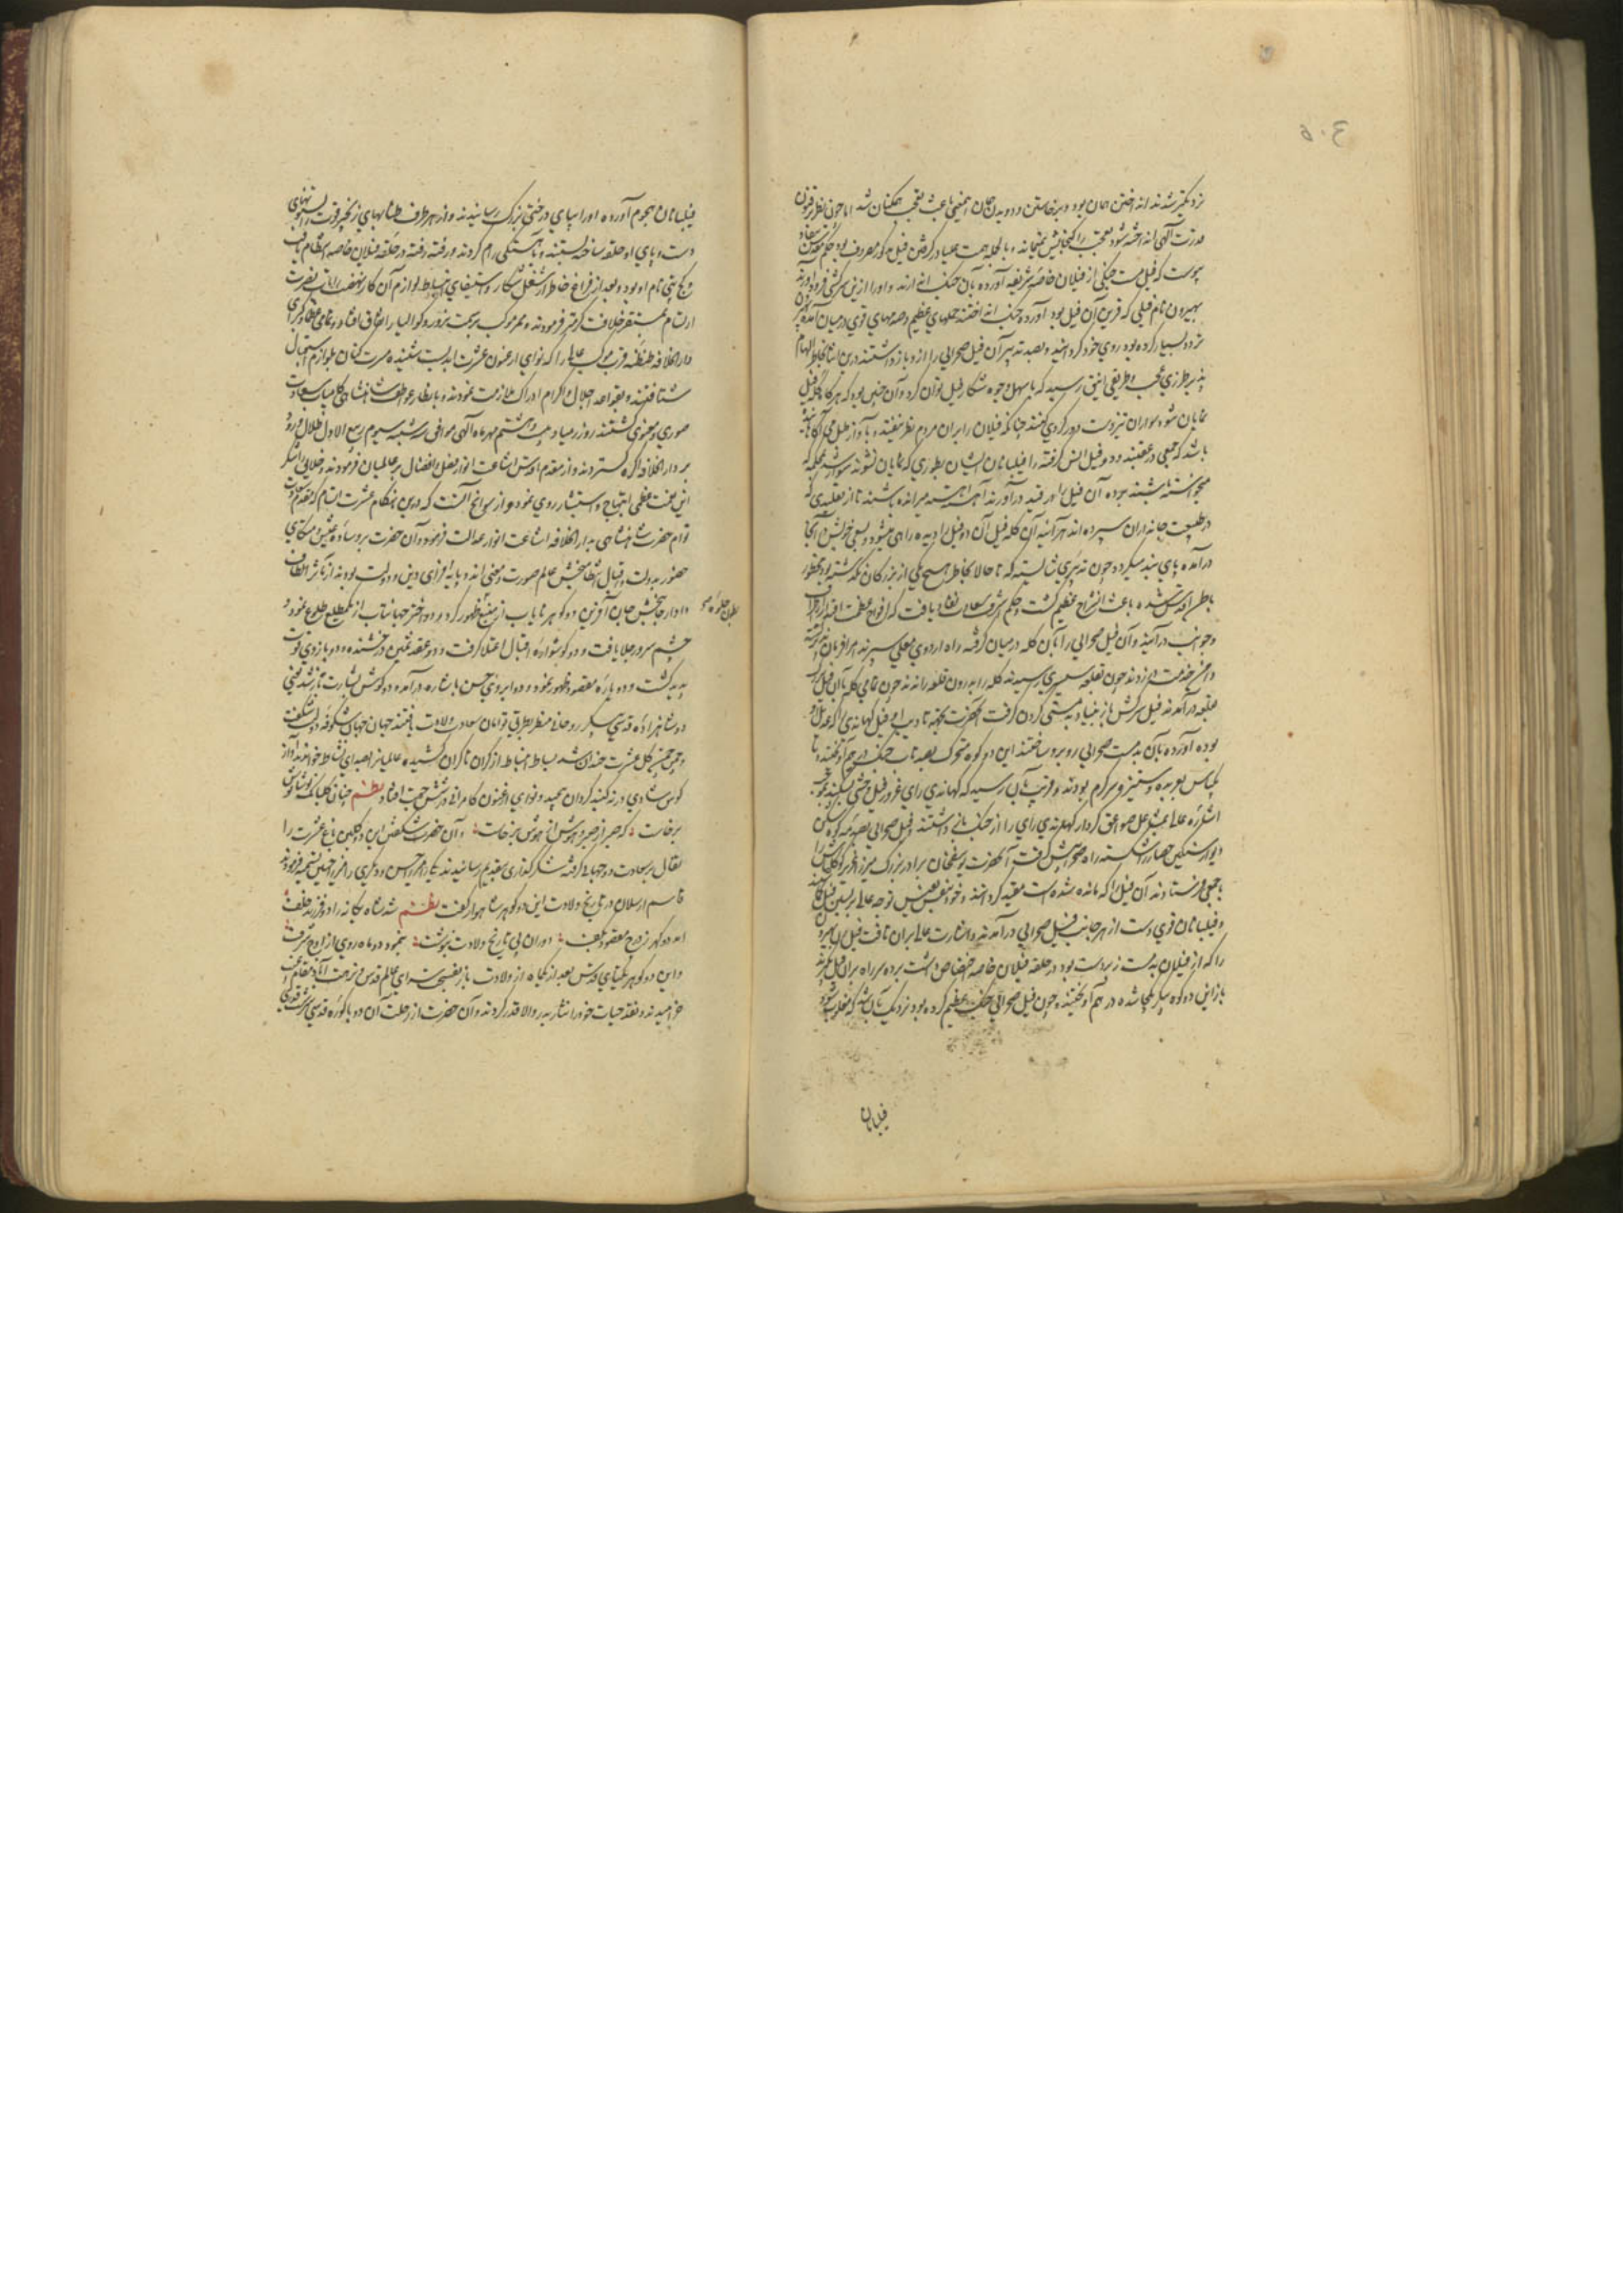 ۴۰۵
نزدیکتر شدند انداختن همان بود و برخاستن و دویدن همان اینمعنی باعث تعجب همکنان شد اما چون نظر بر فنون
قدرت آلهی انداخته شود تعجب را گنجایش نمیماند و بالجمله همت علیا در گرفتن فیل مذکور مصروف بود حکم مقدس نفاذ
پیوست که فیل مست جنگی از فیلان خاصه شریفه آورده بآن جنگ اندازند و او را ازین سرکشی فرود آورند
بهیرون نام فیلی که قرین آن فیل بود آورده جنگ انداختند حملهای عظیم و صدمهای قوی درمیان آمد چون
تردد بسیار کرده بود روی خود گردانید و بصد تدبیر آن فیل صحرایی را ازو باز داشتند درین اثنا بخاطر الهام
پذیر طرزی عجب و طریقی انیق رسید که باسهل وجوه شکار فیل توان کرد و آن چنین بود که هرگاه گله فیل
نمایان شود سواران تیزدست دور گردی کنند چنانکه فیلان را بر آن مردم نظر نیفتد و بآواز طبل می آگاهانیده
باشند که جمعی در عقبند و دو فیل انس گرفته را فیلبانان ایشان بطوری که نمایان نشوند سوار شده بمحلی که
میخواسته باشند برده آن فیل را در قید درآورند آهسته آهسته میرانده باشند تا از تقلیدی که
در طبیعت جانداران سپرده اند هر آئینه آن گله فیل آن دو فیل را دیده راهی میشود و بسعی خویش درآنجا
درآمده پای بند میگردد چون تدبیری شایسته که تا حالا بخاطر هیچ یکی از بزرگان نگذشته بود بخطور
باطن اقدس شده باعث انشراح عظیم گشت و حکم شرف نفاذ یافت که افواج عظمت اقتدار از اطراف
و جوانب درآمده آن فیل صحرایی را با آن گله درمیان گرفته راه اردوی معلی سپرند همه فرمان پذیر گشته
دامن خدمت بر زدند چون بقلعه سیپری رسیدند گله را بدرون قلعه راندند چون تمامی گله با آن فیل بزرگ
بقلعه درآمدند فیل سرکش باز بنیاد بدمستی کردن گرفت آنحضرت بجهة تادیب او فیل کهاندی رای که عدیل او
بوده آورده بآن بدمست صحرایی روبرو ساختند این دو کوه متحرک بصد تاب جنگ درهم آویختند تا
یکپاس بعربده و ستیز سرگرم بودند و قریب بآن رسید که کهاندی رای غرور فیل وحشی بشکند بموجب
اشاره علیا بمشعل صواعق کردار کهاندی رای را از جنگ بازداشتند و فیل صحرایی بصدمه کوه شکن
دیوار سنگین حصار را شکسته راه صحرا پیش گرفت آنحضرت یوسفخان برادر بزرگ میرزا عزیز کوکلتاش را
با جمعی فرستادند آن فیل را که مانده شده است مقید گردانند و خود بنفس نفیس توجه عالی بر بستن فیل گماشتند
و فیلبانان قوی دست از هر جانب فیل صحرایی درآمدند و اشارت عالی بر آن تافت فیل رن بهیرون
را که از فیلان بدمست زبردست بود در حلقه فیلان خاصه اختصاص داشت برده سر راه بر آن فیل بگیرند
باز این دو کوه پیکر یکجا شده درهم آویختند و چون فیل صحرایی جنگ عظیم کرده بود نزدیک بآن شد که مغلوب شود
فیلبانان
فیلبانان هجوم آورده او را بپای درختی بزرگ رسانیدند و از هر طرف طنابهای زنجیر قوت را بستونهای
دست و پای او حلقه ساخته بستند و بآهستگی رام کردند و رفته رفته در حلقه فیلان خاصه انتظام یافت
و گج پتی نام او بود و بعد از فراغ خاطر از شغل شکار و استیفای انبساط لوازم آن کار نهضت رایات نصرت
ارتسام بمستقر خلافت کرامت فرمودند و ممر موکب برسمت نرور و گوالیار اتفاق افتاد و تمامی عظما و کبرای
دارالخلافه طنطنه قرب موکب عالی را که نوای ارغنون عشرت ابدیست شنیده مسرت کنان بلوازم استقبال
شتافتند و بقواعد اجلال و اکرام ادراک ملازمت نمودند و بانظار عواطف شاهنشاهی کامیاب سعادت
صوری و معنوی گشتند روز رمیاد بیست و هشتم مهرماه آلهی موافق سه شنبه سیوم ربیع الاول ظلال ورود
بر دارالخلافه اگره گستردند و از مقدم اقدس اشاعت انوار فضل و افضال بر عالمیان فرمودند و خلایق را شکر
این نعمت عظمی ابتهاج و استبشار روی نمود و از سوانح آنست که درین هنگام عشرت التیام که مقدم سعادت
توام حضرت شاهنشاهی بدارالخلافه اشاعت انوار عدالت فرموده و آن حضرت بر وساده عیش متکی
حضور بدولت و اقبال انتظام بخش عالم صورت و معنی اند و پایه افزای دین و دولت بودند از تکاثر الطاف
دادار جانبخش جان آفرین دو گوهر نایاب از منبع ظهور کرد و دو اختر جهانتاب از یکمطلع طلوع نمود و
بطن جلوه صح
چشم سرور جلا یافت و دو گوشواره اقبال اعتلا گرفت و دو عقد ثمین درخشنده و دو بازوی قوت
پدید گشت و دو پاره مقصود ظهور نمود و دو ابروی حسن باشاره درآمد و دو گوش بشارت باز شد یعنی
دو شاهزاده قدسی پیکر روحانی منظر بطریق توامان سعادت ولادت یافتند جهان جهان شکوفه دولت شکفت
و چمن چمن گل عشرت خندان شد بساط انبساط از کران تا کران کشیده عالمیان را بصدای نشاط خواندند آواز
کوس شادی در نه گنبد گردان پیچید و نوای ارغنون کامرانی در شش جهت افتاد نظم چنان گلبانک نوشانوش
برخاست که صبر از صبر و هوش از هوش برخاست و آن حضرت شکفتن این دو گلبن باغ عشرت را
تفال بر سعادت دو جهانی گرفته شکرگذاری بتقدیم رسانیدند یکی را میرزا حسن و دیگری را میرزا حسین تسمیه فرمودند
قاسم ارسلان در تاریخ ولادت این دو گوهر شاهوار گفت نظم شد شاه یگانه را دو فرزند خلف
آمد دو گهر ز درج مقصود بکف دوران پی تاریخ ولادت بنوشت بنمود دو ماه روی از اوج شرف
و این دو گوهر یکتای قدس بعد از یکماه از ولادت باز بفسحت سرای عالم قدس و نزهت آباد مقام انس
خرامیدند و نقد حیات خود را نثار پدر والا قدر کردند و آن حضرت از رحلت آن دو باکوره قدسی سرشت قدری